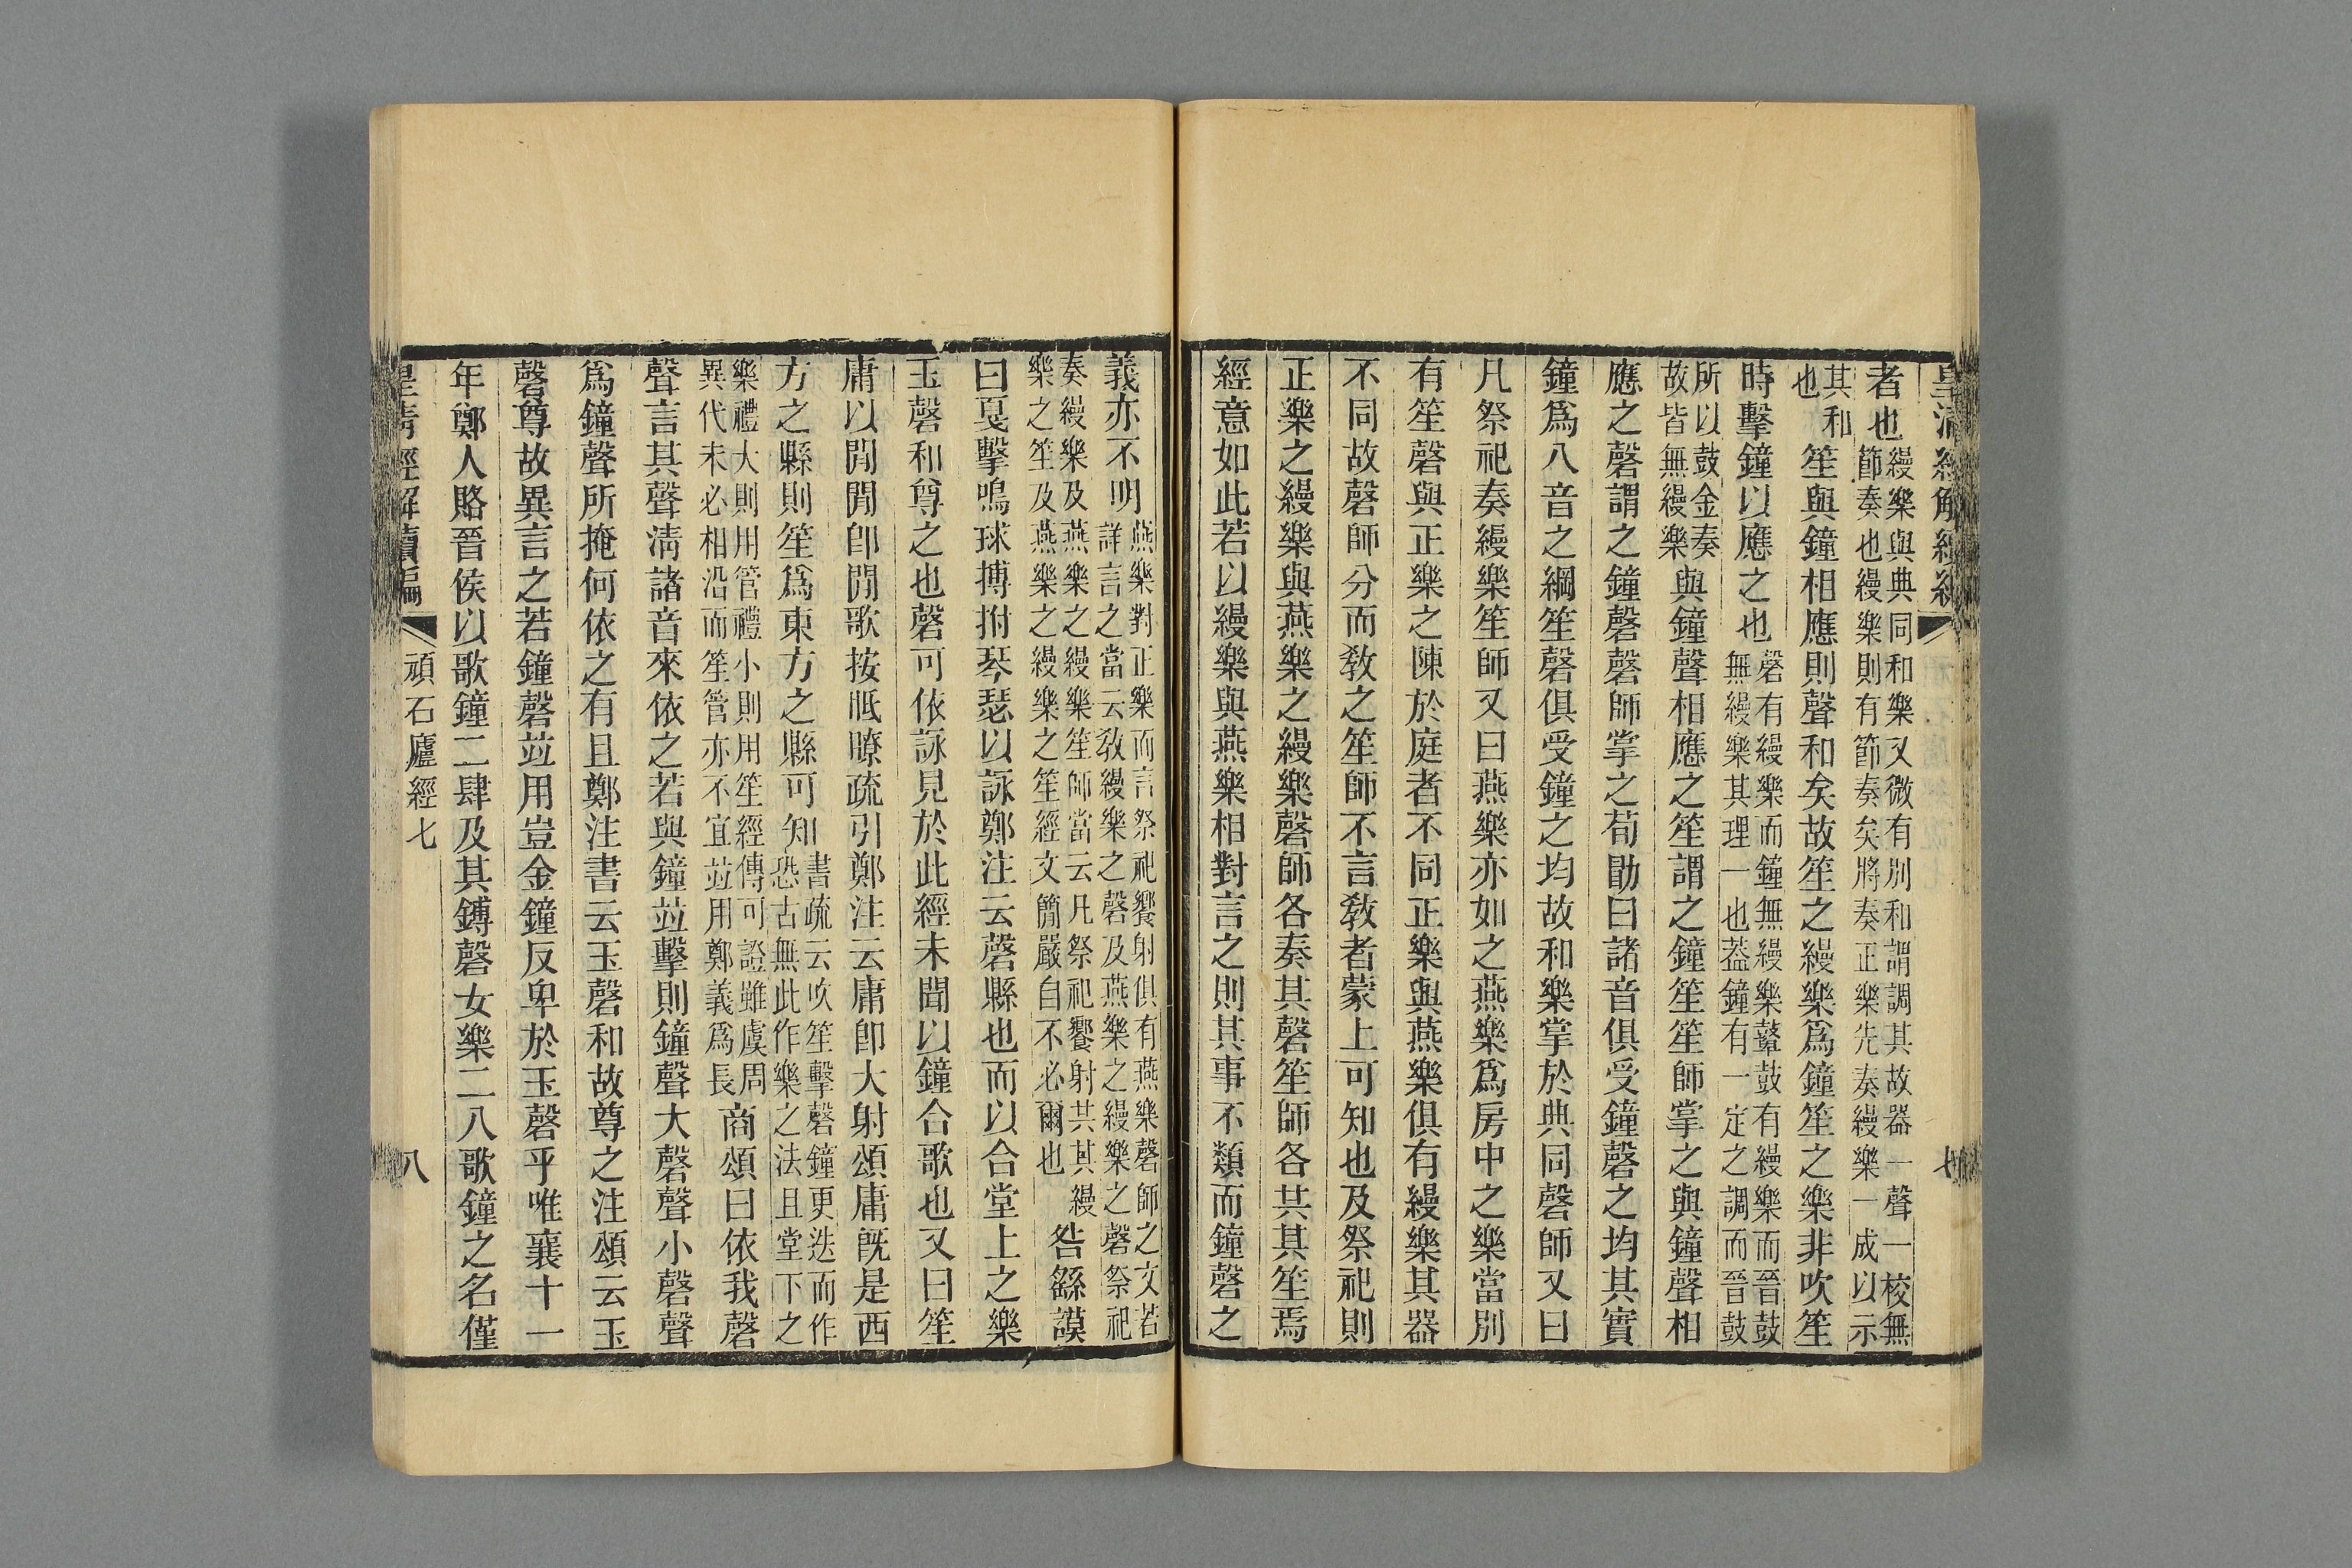 皇清經解續編 七
者也縵樂與典同和樂又微有別和謂調其故器一聲一校無節奏也縵樂則有節奏矣將奏正樂先奏縵樂一成以示
其和也笙與鐘相應則聲和矣故笙之縵樂爲鐘笙之樂非吹笙
時擊鐘以應之也磬有縵樂而鐘無縵樂鼛鼓有縵樂而晉鼓無縵樂其理一也葢鐘有一定之調而晉鼓
所以鼓金奏故皆無縵樂與鐘聲相應之笙謂之鐘笙笙師掌之與鐘聲相
應之磬謂之鐘磬磬師掌之荀勖曰諸音俱受鐘磬之均其實
鐘爲八音之綱笙磬俱受鐘之均故和樂掌於典同磬師又曰
凡祭祀奏縵樂笙師又曰燕樂亦如之燕樂爲房中之樂當別
有笙磬與正樂之陳於庭者不同正樂與燕樂俱有縵樂其器
不同故磬師分而敎之笙師不言敎者蒙上可知也及祭祀則
正樂之縵樂與燕樂之縵樂磬師各奏其磬笙師各共其笙焉
經意如此若以縵樂與燕樂相對言之則其事不類而鐘磬之
義亦不明燕樂對正樂而言祭祀饗射俱有燕樂磬師之文若詳言之當云敎縵樂之磬及燕樂之縵樂之磬祭祀
奏縵樂及燕樂之縵樂笙師當云凡祭祀饗射共其縵樂之笙及燕樂之縵樂之笙經文簡嚴自不必爾也咎繇謨
曰戛擊鳴球搏拊琴瑟以詠鄭注云磬縣也而以合堂上之樂
玉磬和尊之也磬可依詠見於此經未聞以鐘合歌也又曰笙
庸以閒閒卽閒歌按眡瞭疏引鄭注云庸卽大射頌庸旣是西
方之縣則笙爲東方之縣可知書疏云吹笙擊磬鐘更迭而作恐古無此作樂之法且堂下之
樂禮大則用管禮小則用笙經傳可證雖虞周異代未必相沿而笙管亦不宜竝用鄭義爲長商頌曰依我磬
聲言其聲淸諸音來依之若與鐘竝擊則鐘聲大磬聲小磬聲
爲鐘聲所掩何依之有且鄭注書云玉磬和故尊之注頌云玉
磬尊故異言之若鐘磬竝用豈金鐘反卑於玉磬乎唯襄十一
年鄭人賂晉侯以歌鐘二肆及其鎛磬女樂二八歌鐘之名僅
皇清經解續編 頑石廬經七 八